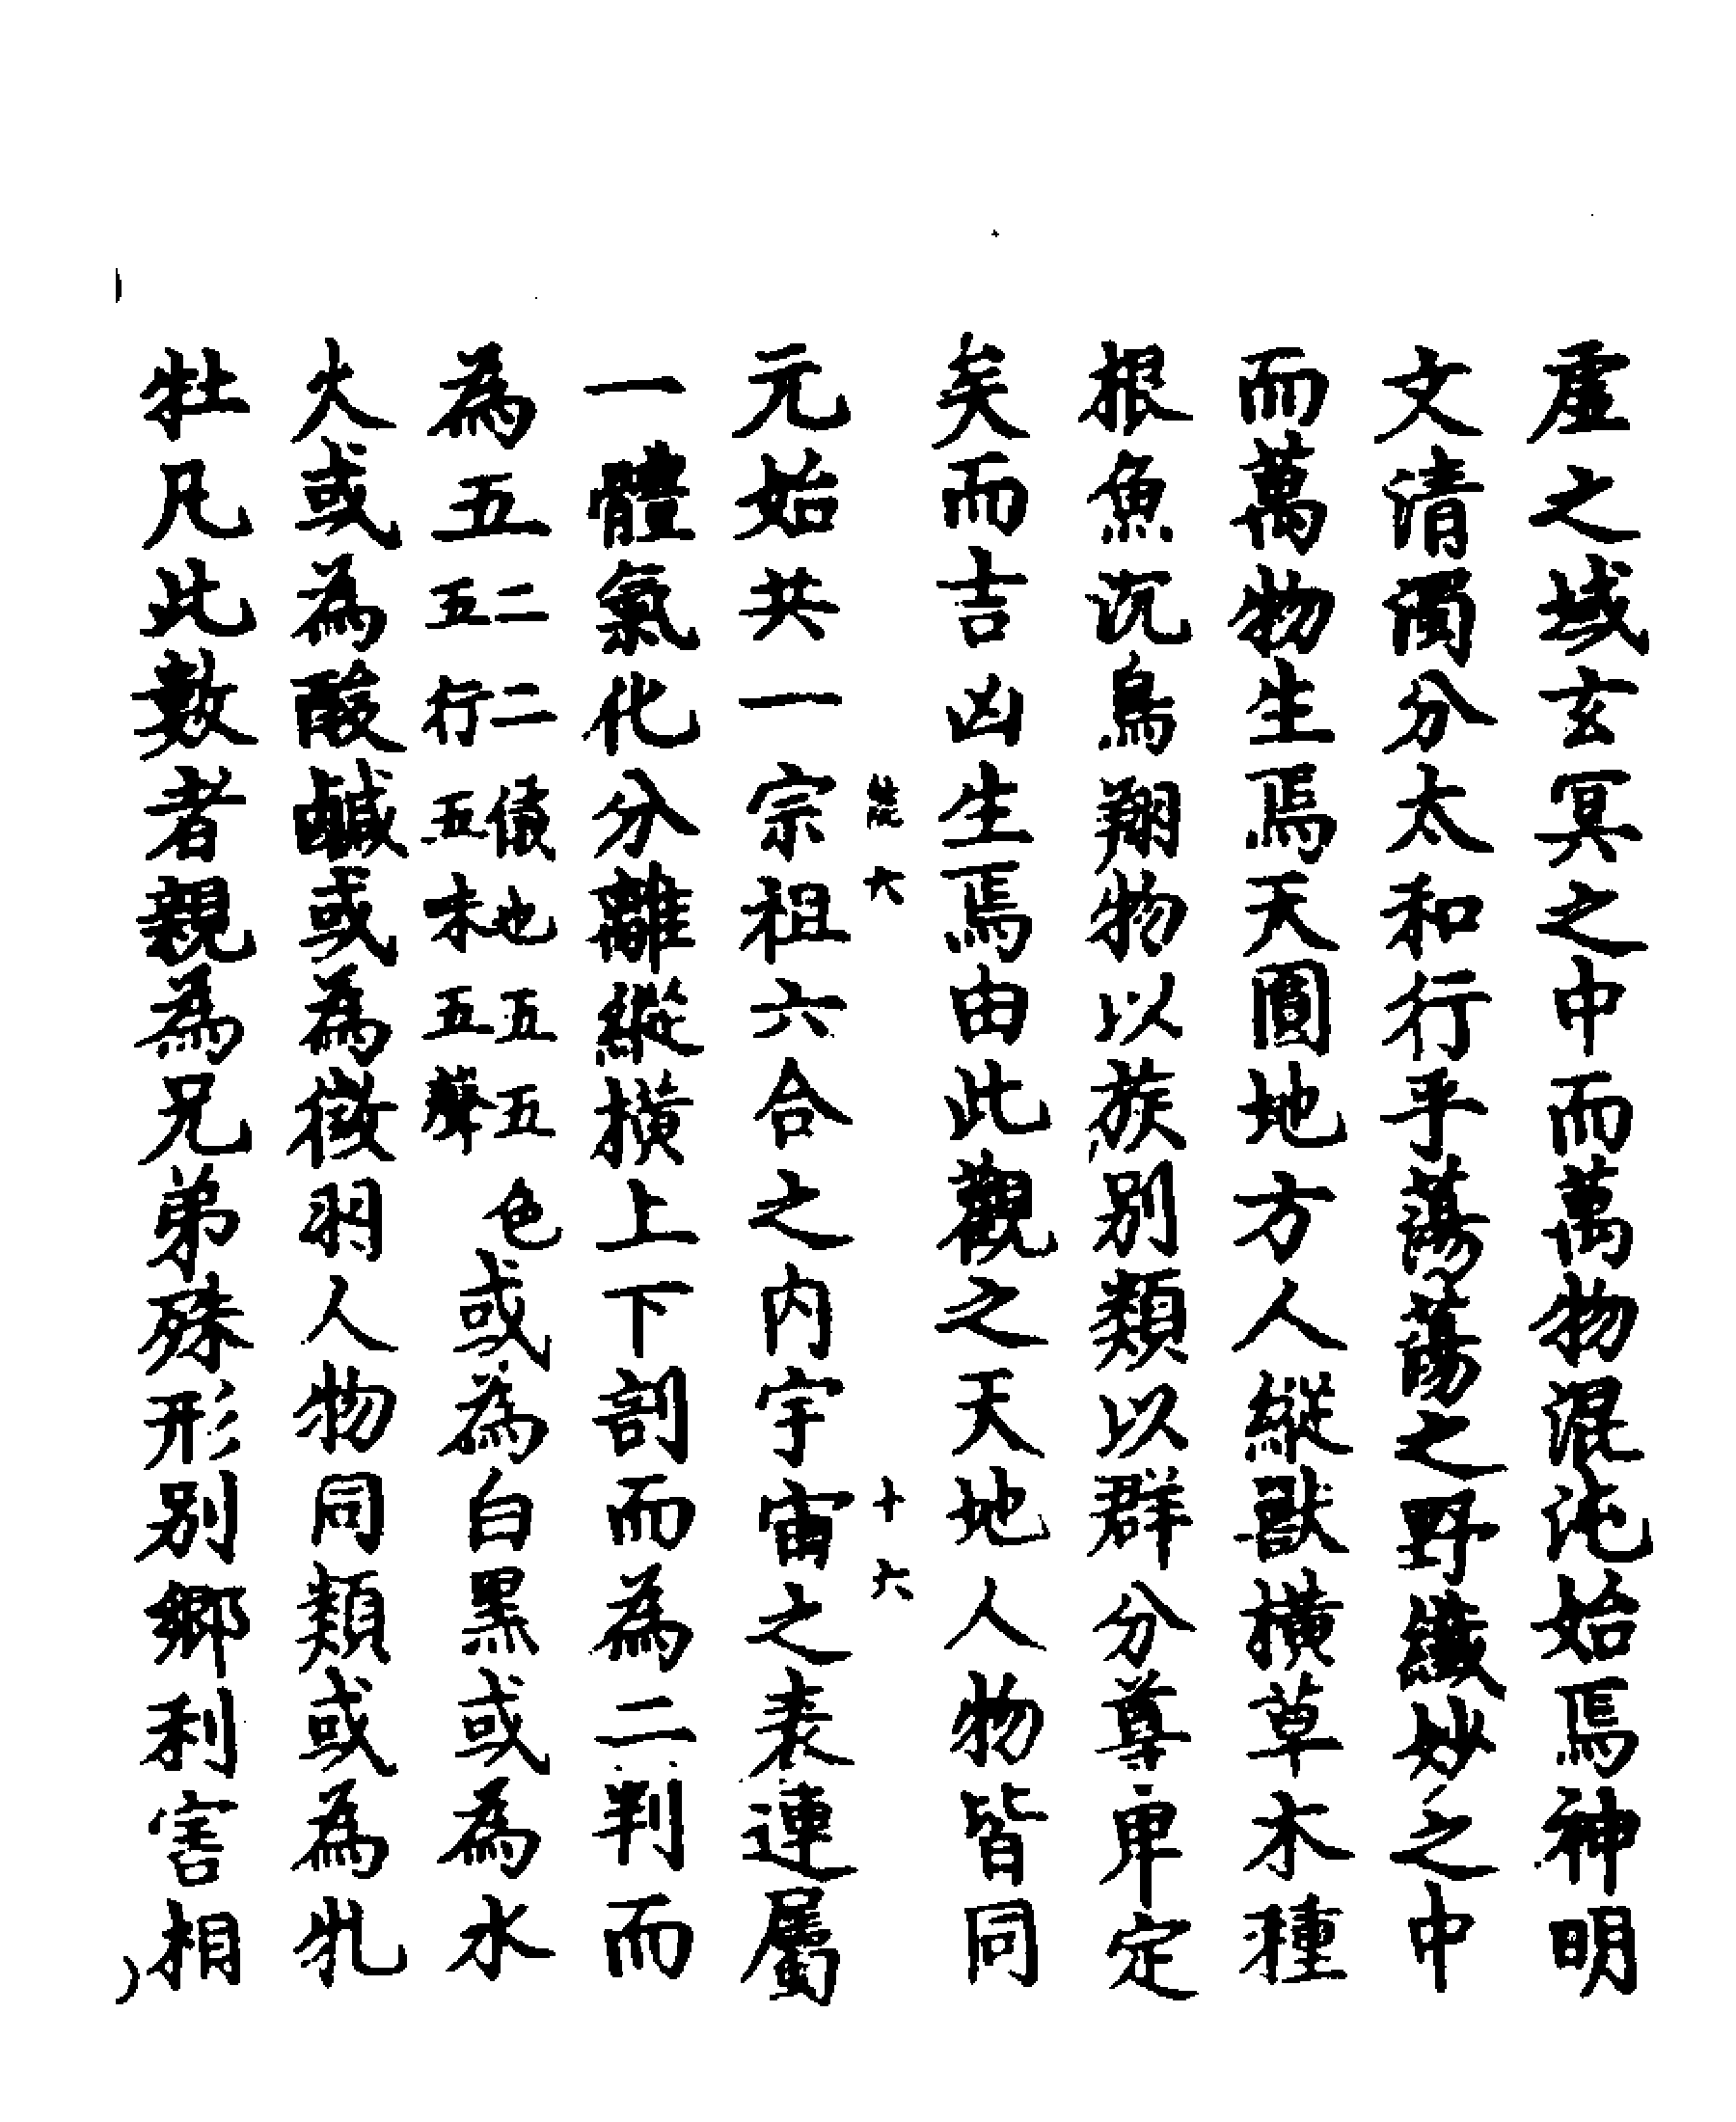 虛之域玄冥之中而萬物混沌始焉神明
文清濁分太和行乎蕩蕩之野纖妙之中
而萬物生焉天圓地方人縱獸橫草木種
根魚沉鳥翔物以族別類以群分尊卑定
矣而吉凶生焉由此觀之天地人物皆同
能六
十六
元始共一宗祖六合之內宇宙之表連屬
一體氣化分離縱橫上下剖而為二判而
為五
二二儀也五五色
五行五味五聲
或為白黑或為水
火或為酸鹹或為徵羽人物同類或為牝
牡凡此數者親為兄弟殊形別鄉利害相